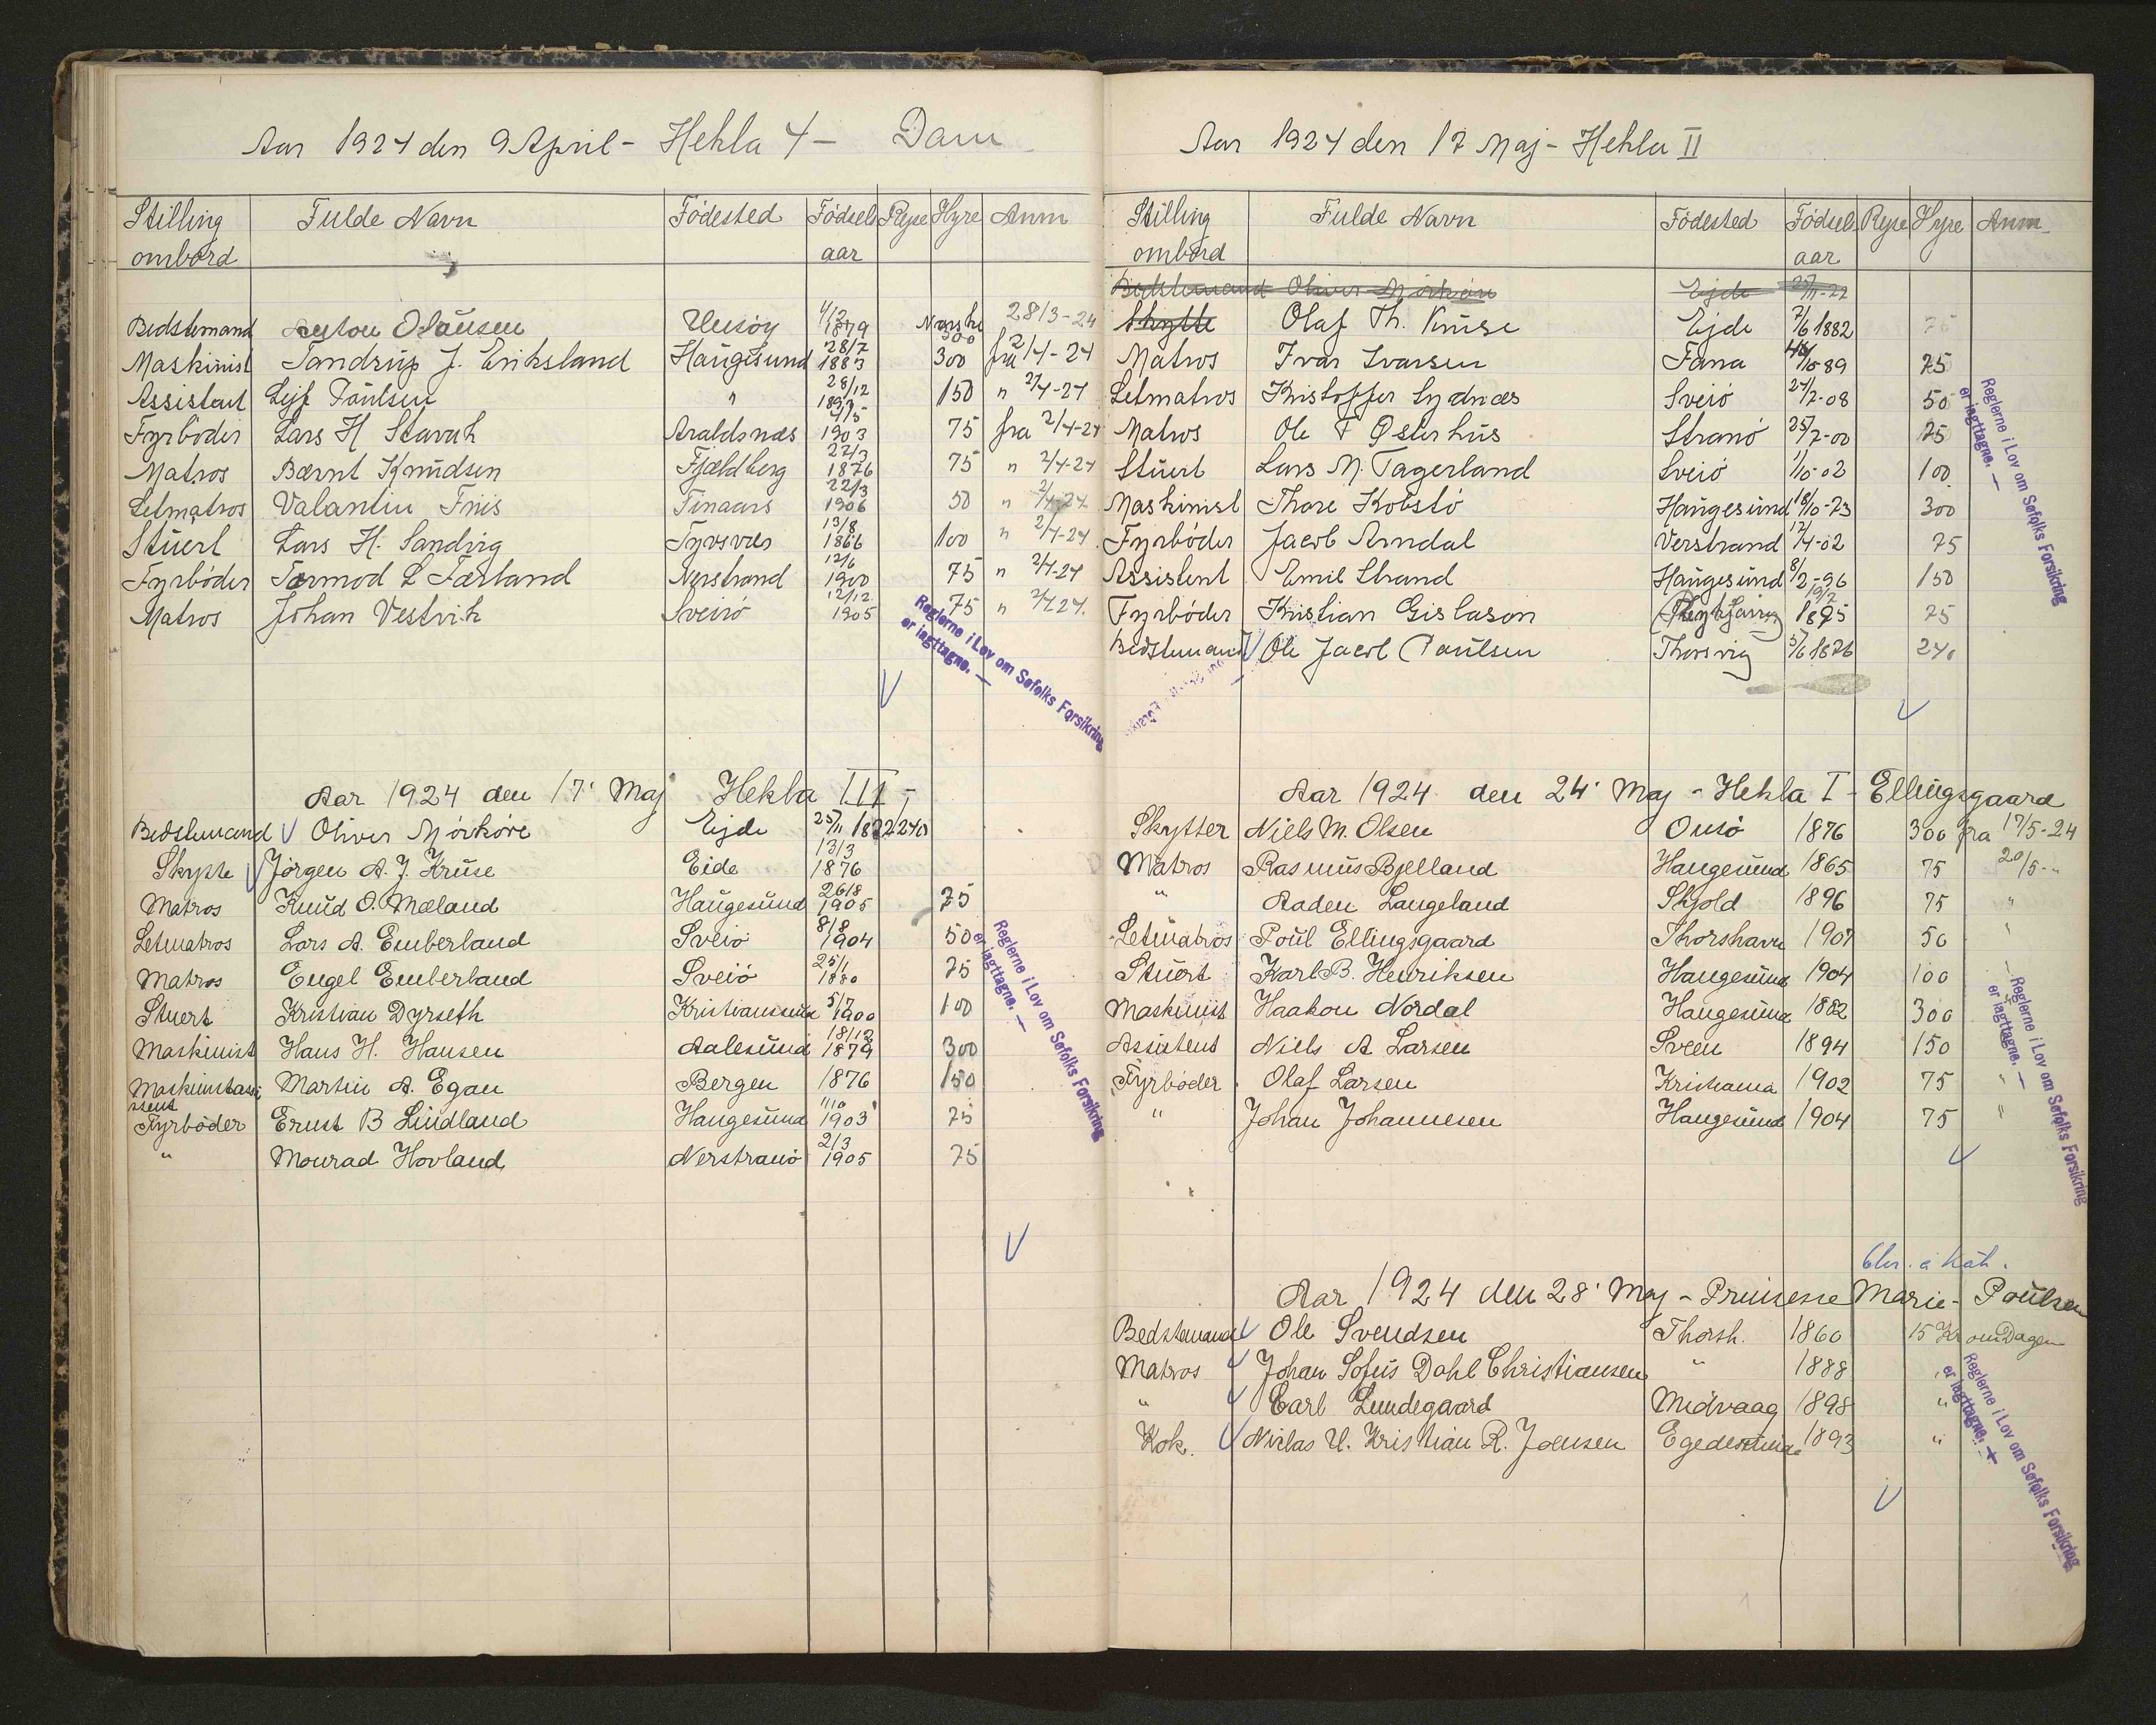 Aar 1924 den 9 April - Hekla 4 - Dam
Stilling ombord Fulde Navn Födested Födsels aar Rejse Hyre Anm
Bedstemand Anton Olausen Utsöy 4/12 1879 Norske 300 28/3-24
Maskinist Tandrup J. Eriksland Haugesund 28/7 1883 300 fra 2/4-24
Assistent Lejf Paulsen " 28/12 1897 150 " 2/4-24
Fyrböder Lars H Stavah Araldsnæs 4/5 1903 75 fra 2/4-24
Matros Bærnt Knudsen Fjældberg 22/3 1876 75 " 2/4-24
Letmatros Valantin Friis Tinaars 22/3 1906 50 " 2/4-24
Stuert Lars H. Sandvig Tysvær 13/8 1866 100 " 2/4-24
Fyrböder Tormod L Færland Nerstrand 12/6 1900 75 " 2/4-24
Matros Johan Vestvik Sveiö 12/12 1905 75 " 2/4 24.
Reglerne i Lov om Søfolks Forsikring
er iagttagne. —
Aar 1924 den 17' Maj Hekla III -
Bedstemand Oliver Mörköre Ejde 25/11 1872 240
Skytte Jörgen A. J. Kruse Eide 13/3 1876
Matros Knud O. Mæland Haugesund 26/8 1905 75
Letmatros Lars A. Emberland Sveiö 8/8 1904 50
Matros Engel Emberland Sveiö 25/1 1880 75
Stuert Kristian Dyrseth Kristianssund 5/7 1900 100
Maskinist Hans H. Hansen Aalesund 18/12 1879 300
Maskinstassi stent Martin A. Egan Bergen 1876 150
Fyrböder Ernst B Lindland Haugesund 1/10 1903 75
" Monrad Hovland Nerstrand 2/3 1905 75
Reglerne i Lov om Søfolks Forsikring
er iagttagne. —
Aar 1924 den 17 Maj - Hekla II
Stilling ombord Fulde Navn Födested Födsels aar Rejse Hyre Anm
Bedstemand Oliver Mörköre Ejde 25/11-72
Skytte Olaf Th. Kruse Ejde 7/6 1882 75
Matros Ivar Ivarsen Fana /10-89 75
Letmatros Kristoffer Lydnæs Sveiö 24/2-08 50
Matros Ole T Østerhus Stranö 25/7-00 75
Stuert Lars M. Fagerland Sveiö 1/10-02 100
Maskinist Thore Kobstö Haugesund 18/10-73 300
Fyrböder Jacob Arndal Verstrand 12/4-02 75
Assistent Emil Strand Haugesund 8/2-96 150
Fyrböder Kristian Gislason 19/2 1895 75
Bedstemand Ole Jacob Paulsen Thorsvig 5/6 1876 240
Reglerne i Lov om Søfolks Forsikring
er iagttagne. —
Aar 1924 den 24' Maj - Hekla I - Ellingsgaard
Skytter Niels M. Olsen Onsö 1876 300 fra 17/5-24
Matros Rasmus Bjelland Haugesund 1865 75 20/5-"
" Aaden Langeland Skjold 1896 75 "
Letmatros Poul Ellingsgaard Thorshavn 1907 50 "
Stuert Karl B. Henriksen Haugesund 1904 100
Maskinist Haakon Nordal Haugesund 1882 300 "
Assistens Niels A Larsen Sveen 1894 150
Fyrböder Olaf Larsen Kristiania 1902 75 "
" Johan Johannesen Haugesund 1904 75 "
Reglerne i Lov om Søfolks Forsikring
er iagttagne. —
Chr. á Kát.
Aar 1924 den 28' Maj - Prinsesse Marie - Poulsen
Bedstemand Ole Svendsen Thorsh. 1860 15 Kr om Dagen
Matros Johan Sofus Dahl Christiansen " 1888 "
" Carl Lundegaard Midvaag 1898 "
Kok. Niclas U. Kristian R. Joensen Egedesminde 1893 "
Reglerne i Lov om Søfolks Forsikring
er iagttagne. —